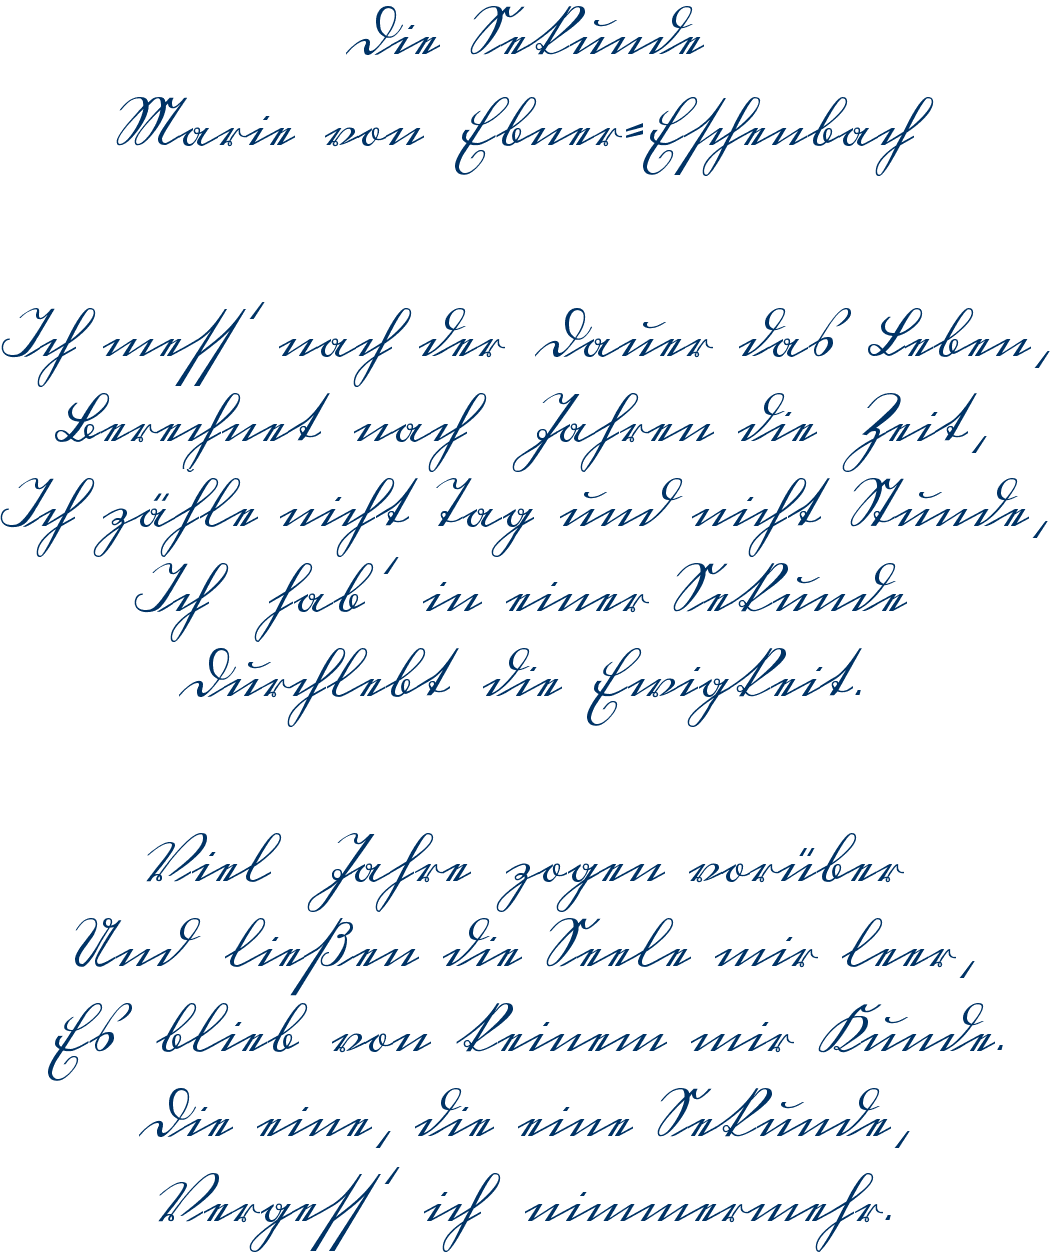 Die Sekunde
Marie von Ebner=Eschenbach
Ich mess' nach der Dauer das Leben,
Berechnet nach Jahren die Zeit,
Ich zähle nicht Tag und nicht Stunde,
Ich hab' in einer Sekunde
Durchlebt die Ewigkeit.
Viel Jahre zogen vorüber
Und ließen die Seele mir leer,
Es blieb von keinem mir Kunde.
Die eine, die eine Sekunde,
Vergess' ich nimmermehr.